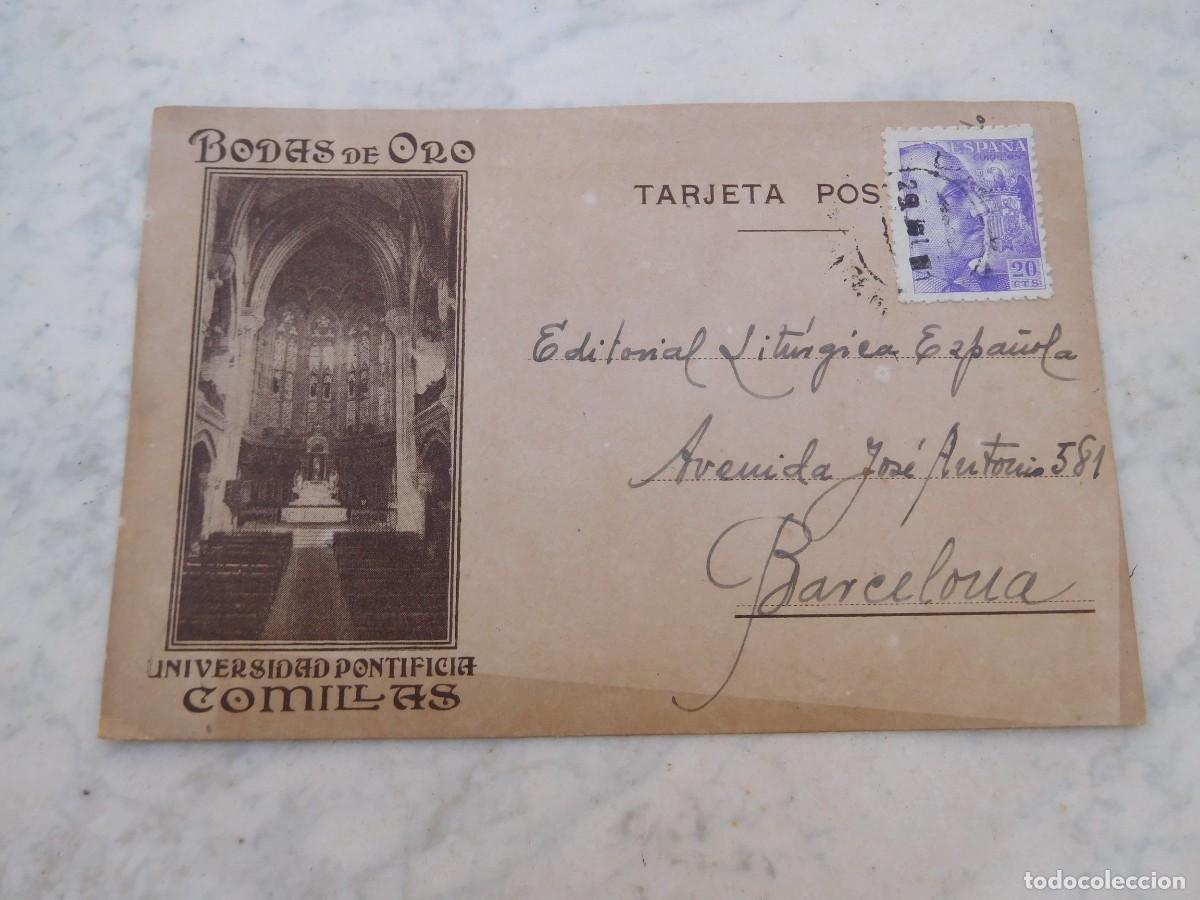 BODAS DE ORO
TARJETA POS
ESPAÑA
CORREOS
20
CTS.
Editorial Litúrgica Española
Avenida José Antonio 581
Barcelona
UNIVERSIDAD PONTIFICIA
COMILLAS
todocoleccion